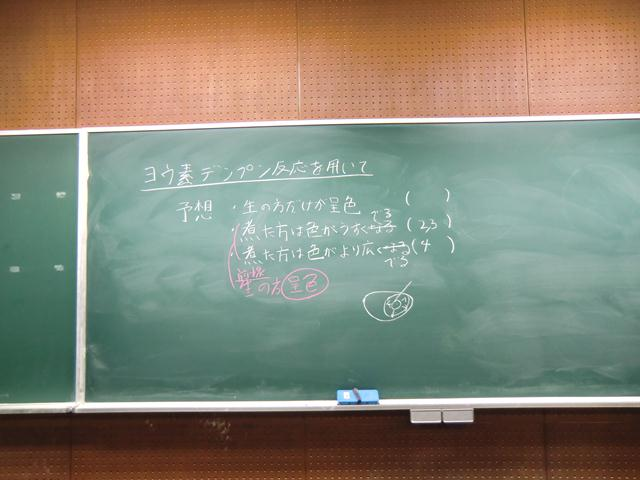 ヨウ素デンプン反応を用いて
予想 ・生の方だけが呈色 ( )
・煮た方は色がうすくでる (2,3)
・煮た方は色がより広くでる (4)
生の方呈色